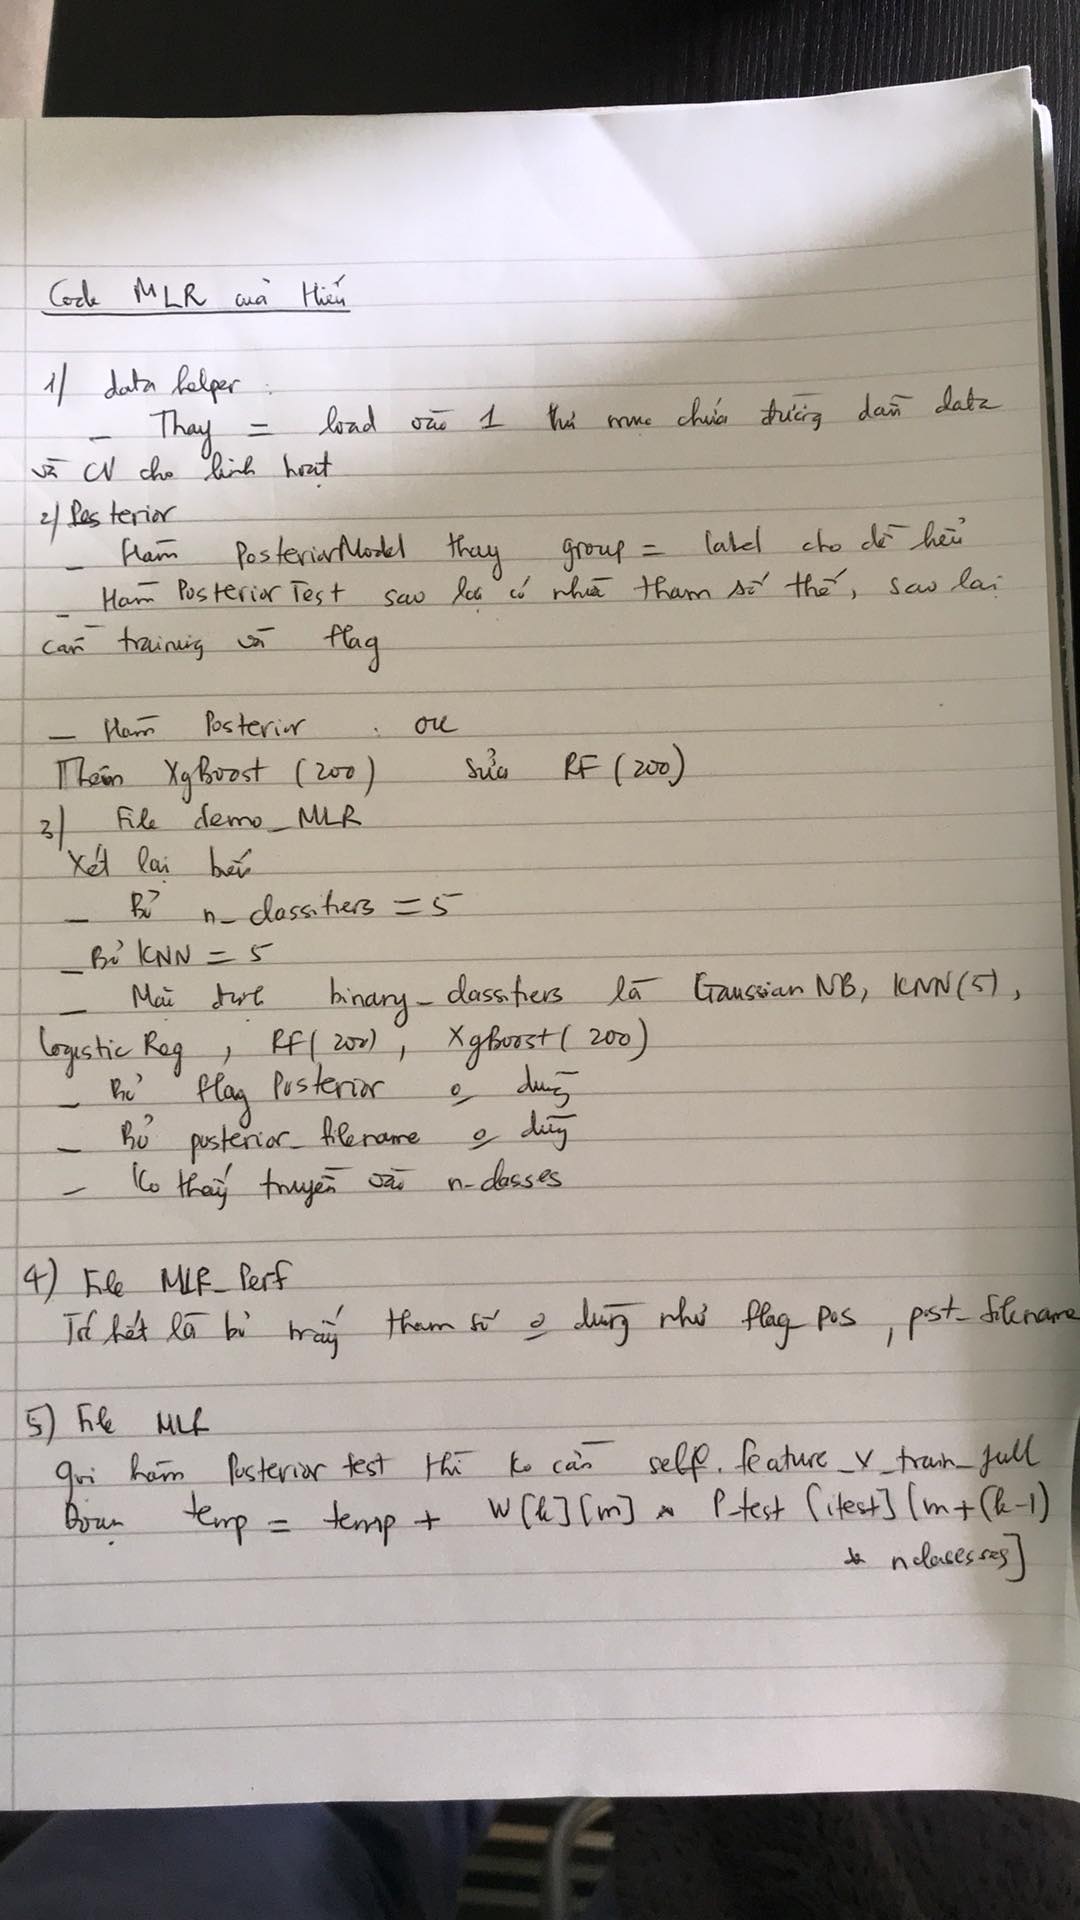 Code MLR của Hiếu
1/ data helper :
- Thay = load vào 1 thư mục chứa đường dẫn data
và CV cho linh hoạt
2/ Posterior
- Hàm PosteriorModel thay group = label cho dễ hiểu
- Hàm Posterior Test sao lại có nhiều tham số thế, sao lại
cần training và flag
- Hàm Posterior : ok
Thêm XgBoost (200) sửa RF (200)
3/ File demo_MLR
Xét lại biến
- Bỏ n_classifiers = 5
- Bỏ KNN = 5
- Mặc định binary_classifiers là Gaussian NB, KNN(5),
Logistic Reg, RF(200), XgBoost(200)
- Bỏ flag Posterior o dùng
- Bỏ posterior_filename o dùng
- Ko thấy truyền vào n-classes
4) File MLR_Perf
Trước hết là bỏ mấy tham số o dùng như flag pos, post_filename
5) File MLR
gọi hàm Posterior test thì ko cần self.feature_X_train_full
Đoạn temp = temp + W[k][m] * P_test [itest][m+(k-1)
* nclassses]